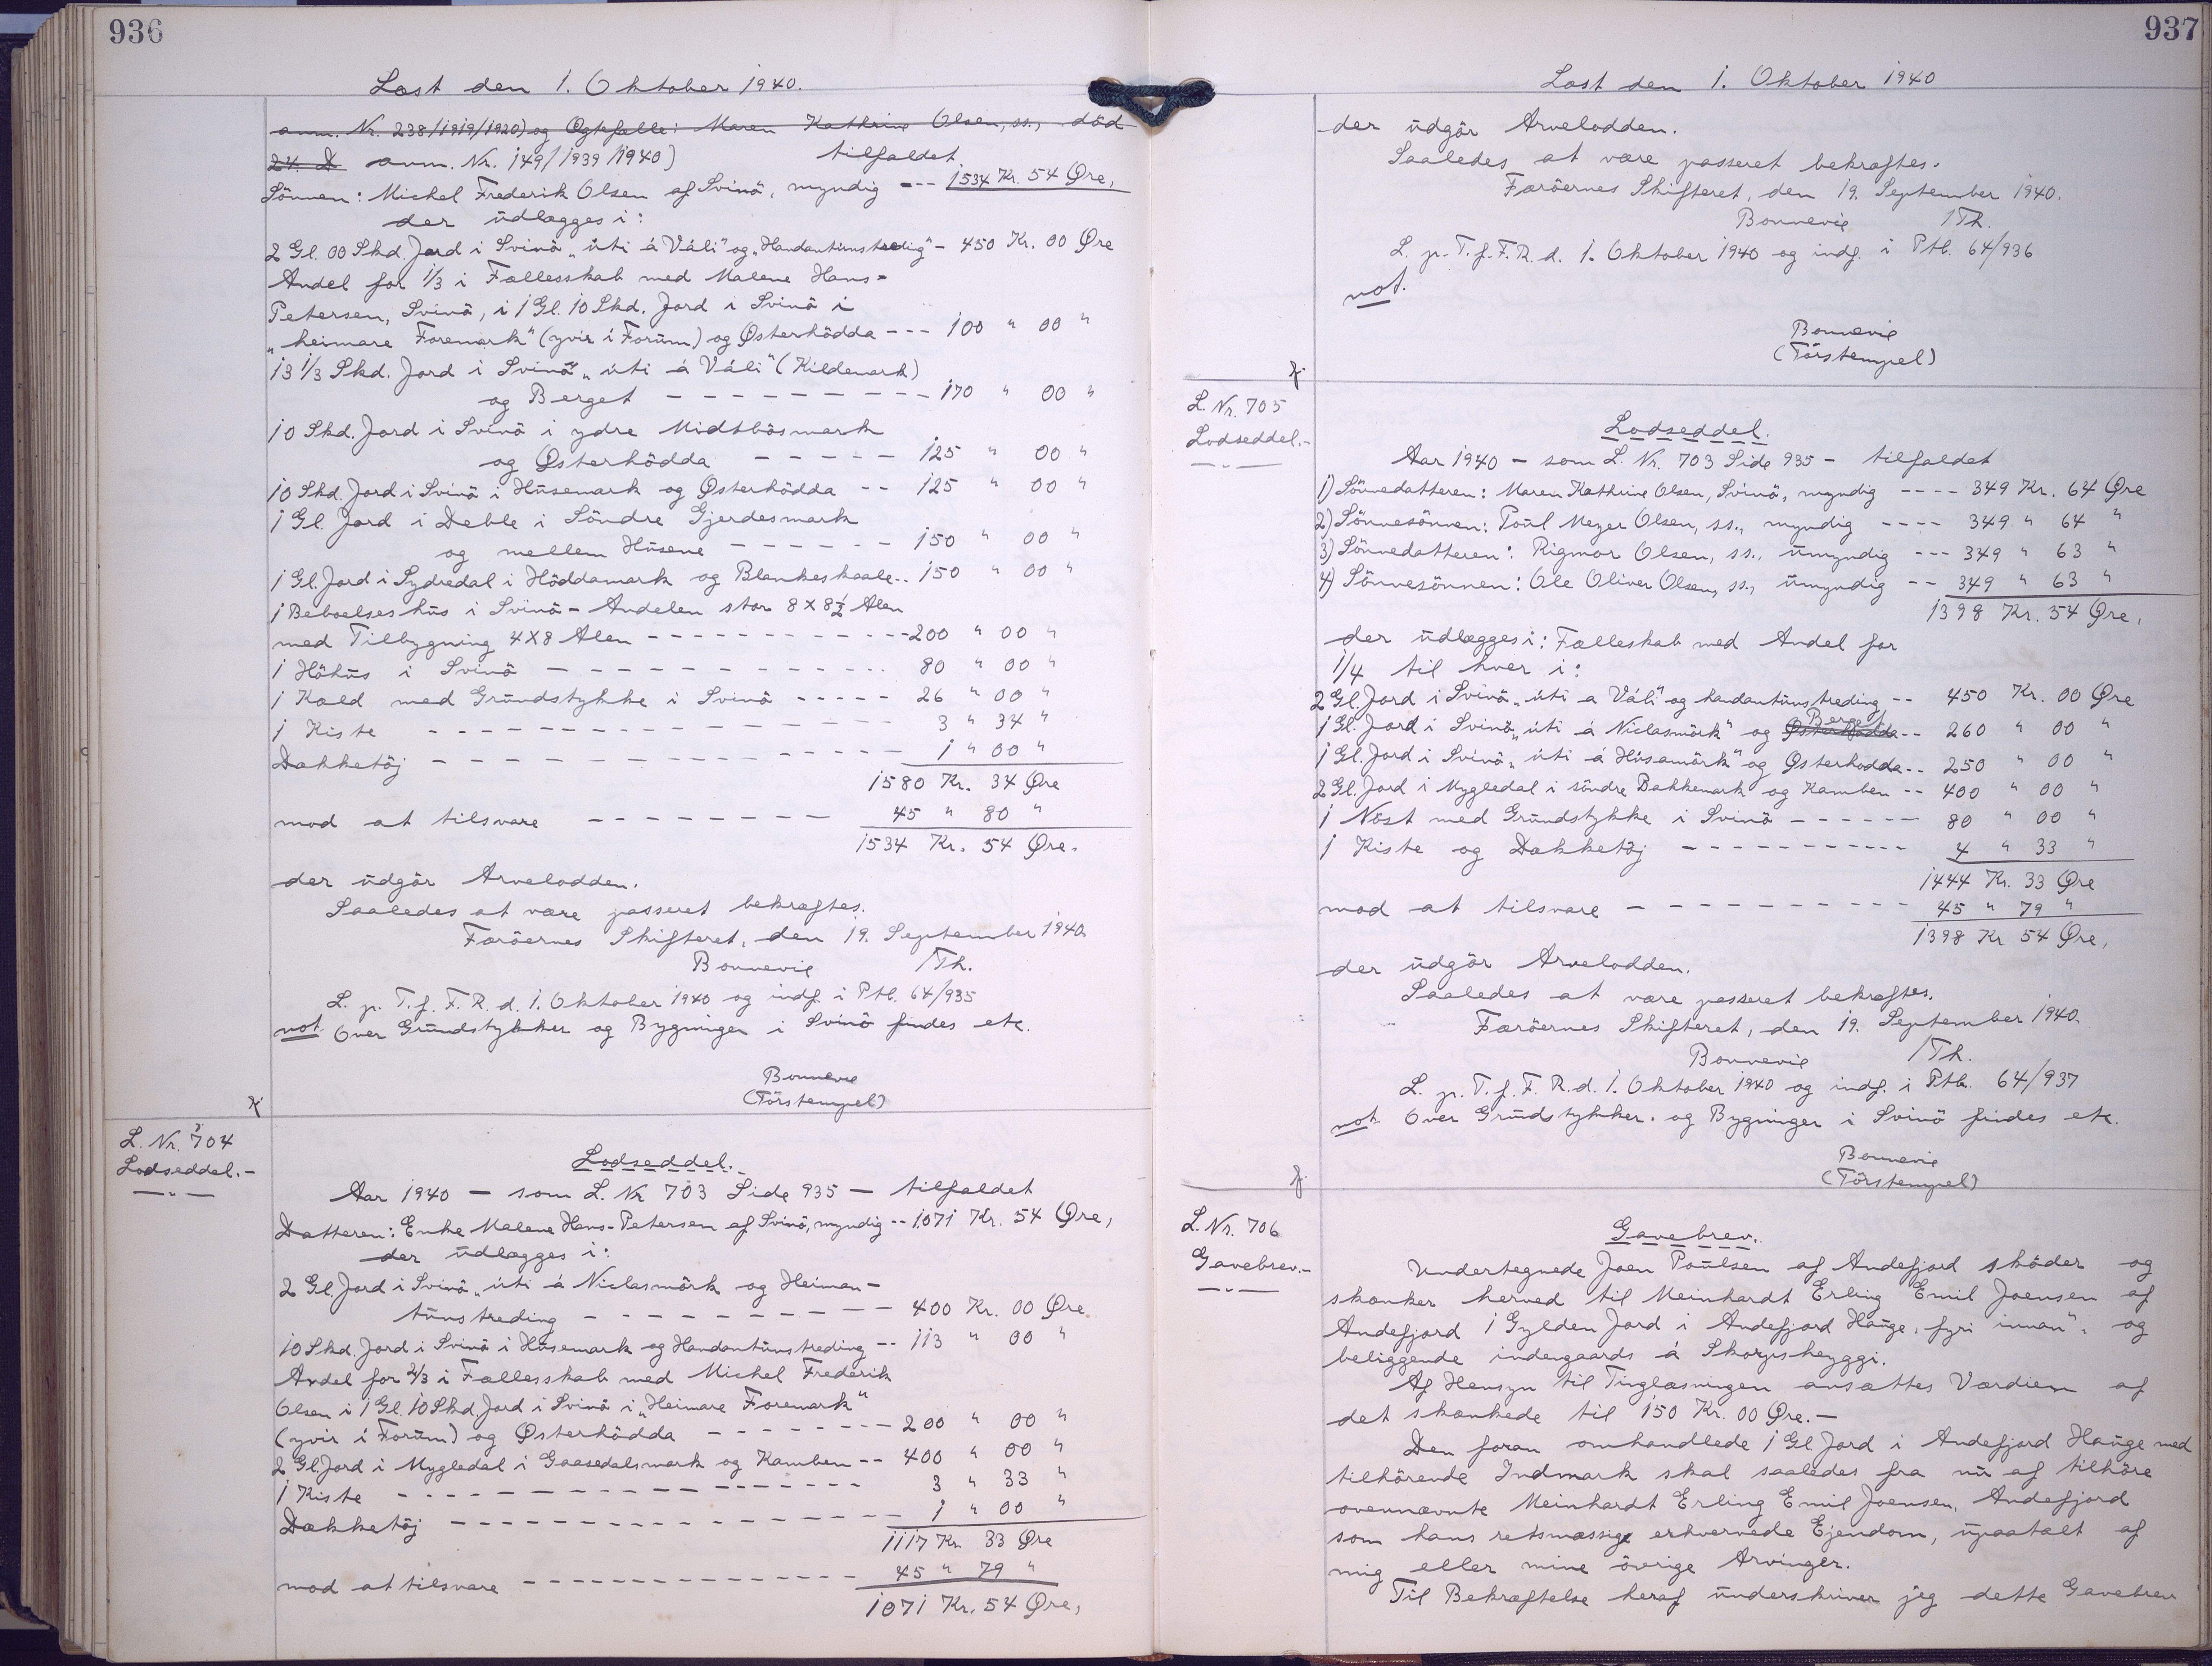 936
Læst den 1. Oktober 1940.
anm. Nr. 238/1919/1920) og Ægtefælle: Maren Kathrine Olsen, ss., död
24. D anm. Nr. 149/1939/1940) tilfaldet
Sönnen: Michel Frederik Olsen af Svinö, myndig --- 1534 Kr. 54 Øre,
der udlægges i:
2 Gl. 00 Skd. Jord i Svinö „úti á Váli" og „Handantúnstreding" - 450 Kr. 00 Øre
Andel for 1/3 i Fællesskab med Malene Hans-
Petersen, Svinö, i 1 Gl. 10 Skd. Jord i Svinö i
„heimare Foremark" (yvir í Forum) og Østerhödda --- 100 " 00 "
13 1/3 Skd. Jord i Svinö „úti á Váli" (Kildemark)
og Berget - - - - - - - - - - 170 " 00 "
10 Skd. Jord i Svinö i ydre Midtbösmark
og Østerhödda - - - - - 125 " 00 "
10 Skd. Jord i Svinö i Húsemark og Østerhödda -- 125 " 00 "
1 Gl. Jord i Deble i Söndre Gjerdesmark
og mellem Husene - - - - - - 150 " 00 "
1 Gl. Jord i Sydredal i Höddamark og Blankeskaale.. 150 " 00 "
1 Beboelseshus i Svinö - Andelen stor 8 X 8½ Alen
med Tilbygning 4X8 Alen - - - - - - - - - - - 200 " 00 "
1 Höhus i Svinö - - - - - - - - - - - 80 " 00 "
1 Kæld med Grundstykke i Svinö - - - - - 26 " 00 "
1 Kiste - - - - - - - - - - - - - - - 3 " 34 "
Dækketöj - - - - - - - - - - - - - - - 1 " 00 "
1580 Kr. 34 Øre
mod at tilsvare - - - - - - - - 45 " 80 "
1534 Kr. 54 Øre.
der udgör Arvelodden.
Saaledes at være passeret bekræftes.
Færöernes Skifteret, den 19. September 1940.
Bonnevie /Th.
L. p. T. f. F. R. d. 1. Oktober 1940 og indf. i Ptb. 64/935
not. Over Grundstykker og Bygninger i Svinö findes etc.
Bonnevie
(Törstempel)
L. Nr. 704
Lodseddel.-
Lodseddel.
Aar 1940 - som L. Nr 703 Side 935 - tilfaldet
Datteren: Enke Malene Hans-Petersen af Svinö, myndig -- 1071 Kr. 54 Øre,
der udlægges i:
2 Gl. Jord i Svinö „úti á Niclasmörk og Heiman-
tunstreding - - - - - - - - - - 400 Kr. 00 Øre
10 Skd. Jord i Svinö i Husemark og Handantúnstreding -- 113 " 00 "
Andel for 2/3 i Fællesskab med Michel Frederik
Olsen i 1 Gl. 10 Skd. Jord i Svinö i „Heimare Foremark"
(yvir í Forum) og Østerhödda - - - - - - - 200 " 00 "
2 Gl. Jord i Mygledal i Gaasedalsmark og Kamben -- 400 " 00 "
1 Kiste - - - - - - - - - - - - - - - - - 3 " 33 "
Dækketöj - - - - - - - - - - - - - - - - 1 " 00 "
1117 Kr 33 Øre
mod at tilsvare - - - - - - - - - - - - - - 45 " 79 "
1071 Kr. 54 Øre,
937
Læst den 1. Oktober 1940
der udgör Arvelodden.
Saaledes at være passeret bekræftes.
Færöernes Skifteret, den 19. September 1940.
Bonnevie /Th.
L. p. T. f. F. R. d. 1. Oktober 1940 og indf. i Ptb. 64/936
not.
Bonnevie
(Törstempel)
L. Nr. 705
Lodseddel.-
Lodseddel.
Aar 1940 - som L. Nr. 703 Side 935 - tilfaldet
1) Sönnedatteren: Maren Kathrine Olsen, Svinö, myndig ---- 349 Kr. 64 Øre
2) Sönnesönnen: Poul Mezer Olsen, ss., myndig ---- 349 " 64 "
3) Sönnedatteren: Rigmor Olsen, ss., umyndig --- 349 " 63 "
4) Sönnesönnen: Ole Oliver Olsen, ss., umyndig -- 349 " 63 "
1398 Kr. 54 Øre,
der udlægges i: Fælleskab med Andel for
1/4 til hver i:
2 Gl. Jord i Svinö „úti a Váli" og handantúnstreding -- 450 Kr. 00 Øre
1 Gl. Jord i Svinö „úti á Niclasmörk" og Østerhödda Berget -- 260 " 00 "
1 Gl. Jord i Svinö „úti á Húsamörk" og Østerhodda -- 250 " 00 "
2 Gl. Jord i Mygledal i söndre Bakkemark og Kamben -- 400 " 00 "
1 Nöst med Grundstykke i Svinö - - - - - - 80 " 00 "
1 Kiste og Dækketöj - - - - - - - - - - - 4 " 33 "
1444 Kr. 33 Øre
mod at tilsvare - - - - - - - - - - - 45 " 79 "
1398 Kr 54 Øre,
der udgör Arvelodden.
Saaledes at være passeret bekræftes.
Færöernes Skifteret, den 19. September 1940.
Bonnevie /Th.
L. p. T. f. F. R. d. 1. Oktober 1940 og indf. i Ptb. 64/937
not. Over Grundstykker og Bygninger i Svinö findes etc.
Bonnevie
(Törstempel)
L. Nr. 706
Gavebrev.-
Gavebrev.
Undertegnede Joen Poulsen af Andefjord sköder og
skænker herved til Meinhardt Erling Emil Joensen af
Andefjord 1 Gylden Jord i Andefjord Hauge, fyri innan", og
beliggende indengaards á Skorpsheyggi.
Af Hensyn til Tinglæsningen ansættes Værdien af
det skænkede til 150 Kr. 00 Øre.-
Den foran omhandlede 1 Gl. Jord i Andefjord Hauge med
tilhörende Indmark skal saaledes fra nu af tilhöre
ovennævnte Meinhardt Erling Emil Joensen, Andefjord
som hans retsmæssige erhvervede Ejendom, upaatalt af
mig eller mine övrige Arvinger.
Til Bekræftelse heraf underskriver jeg dette Gavebrev